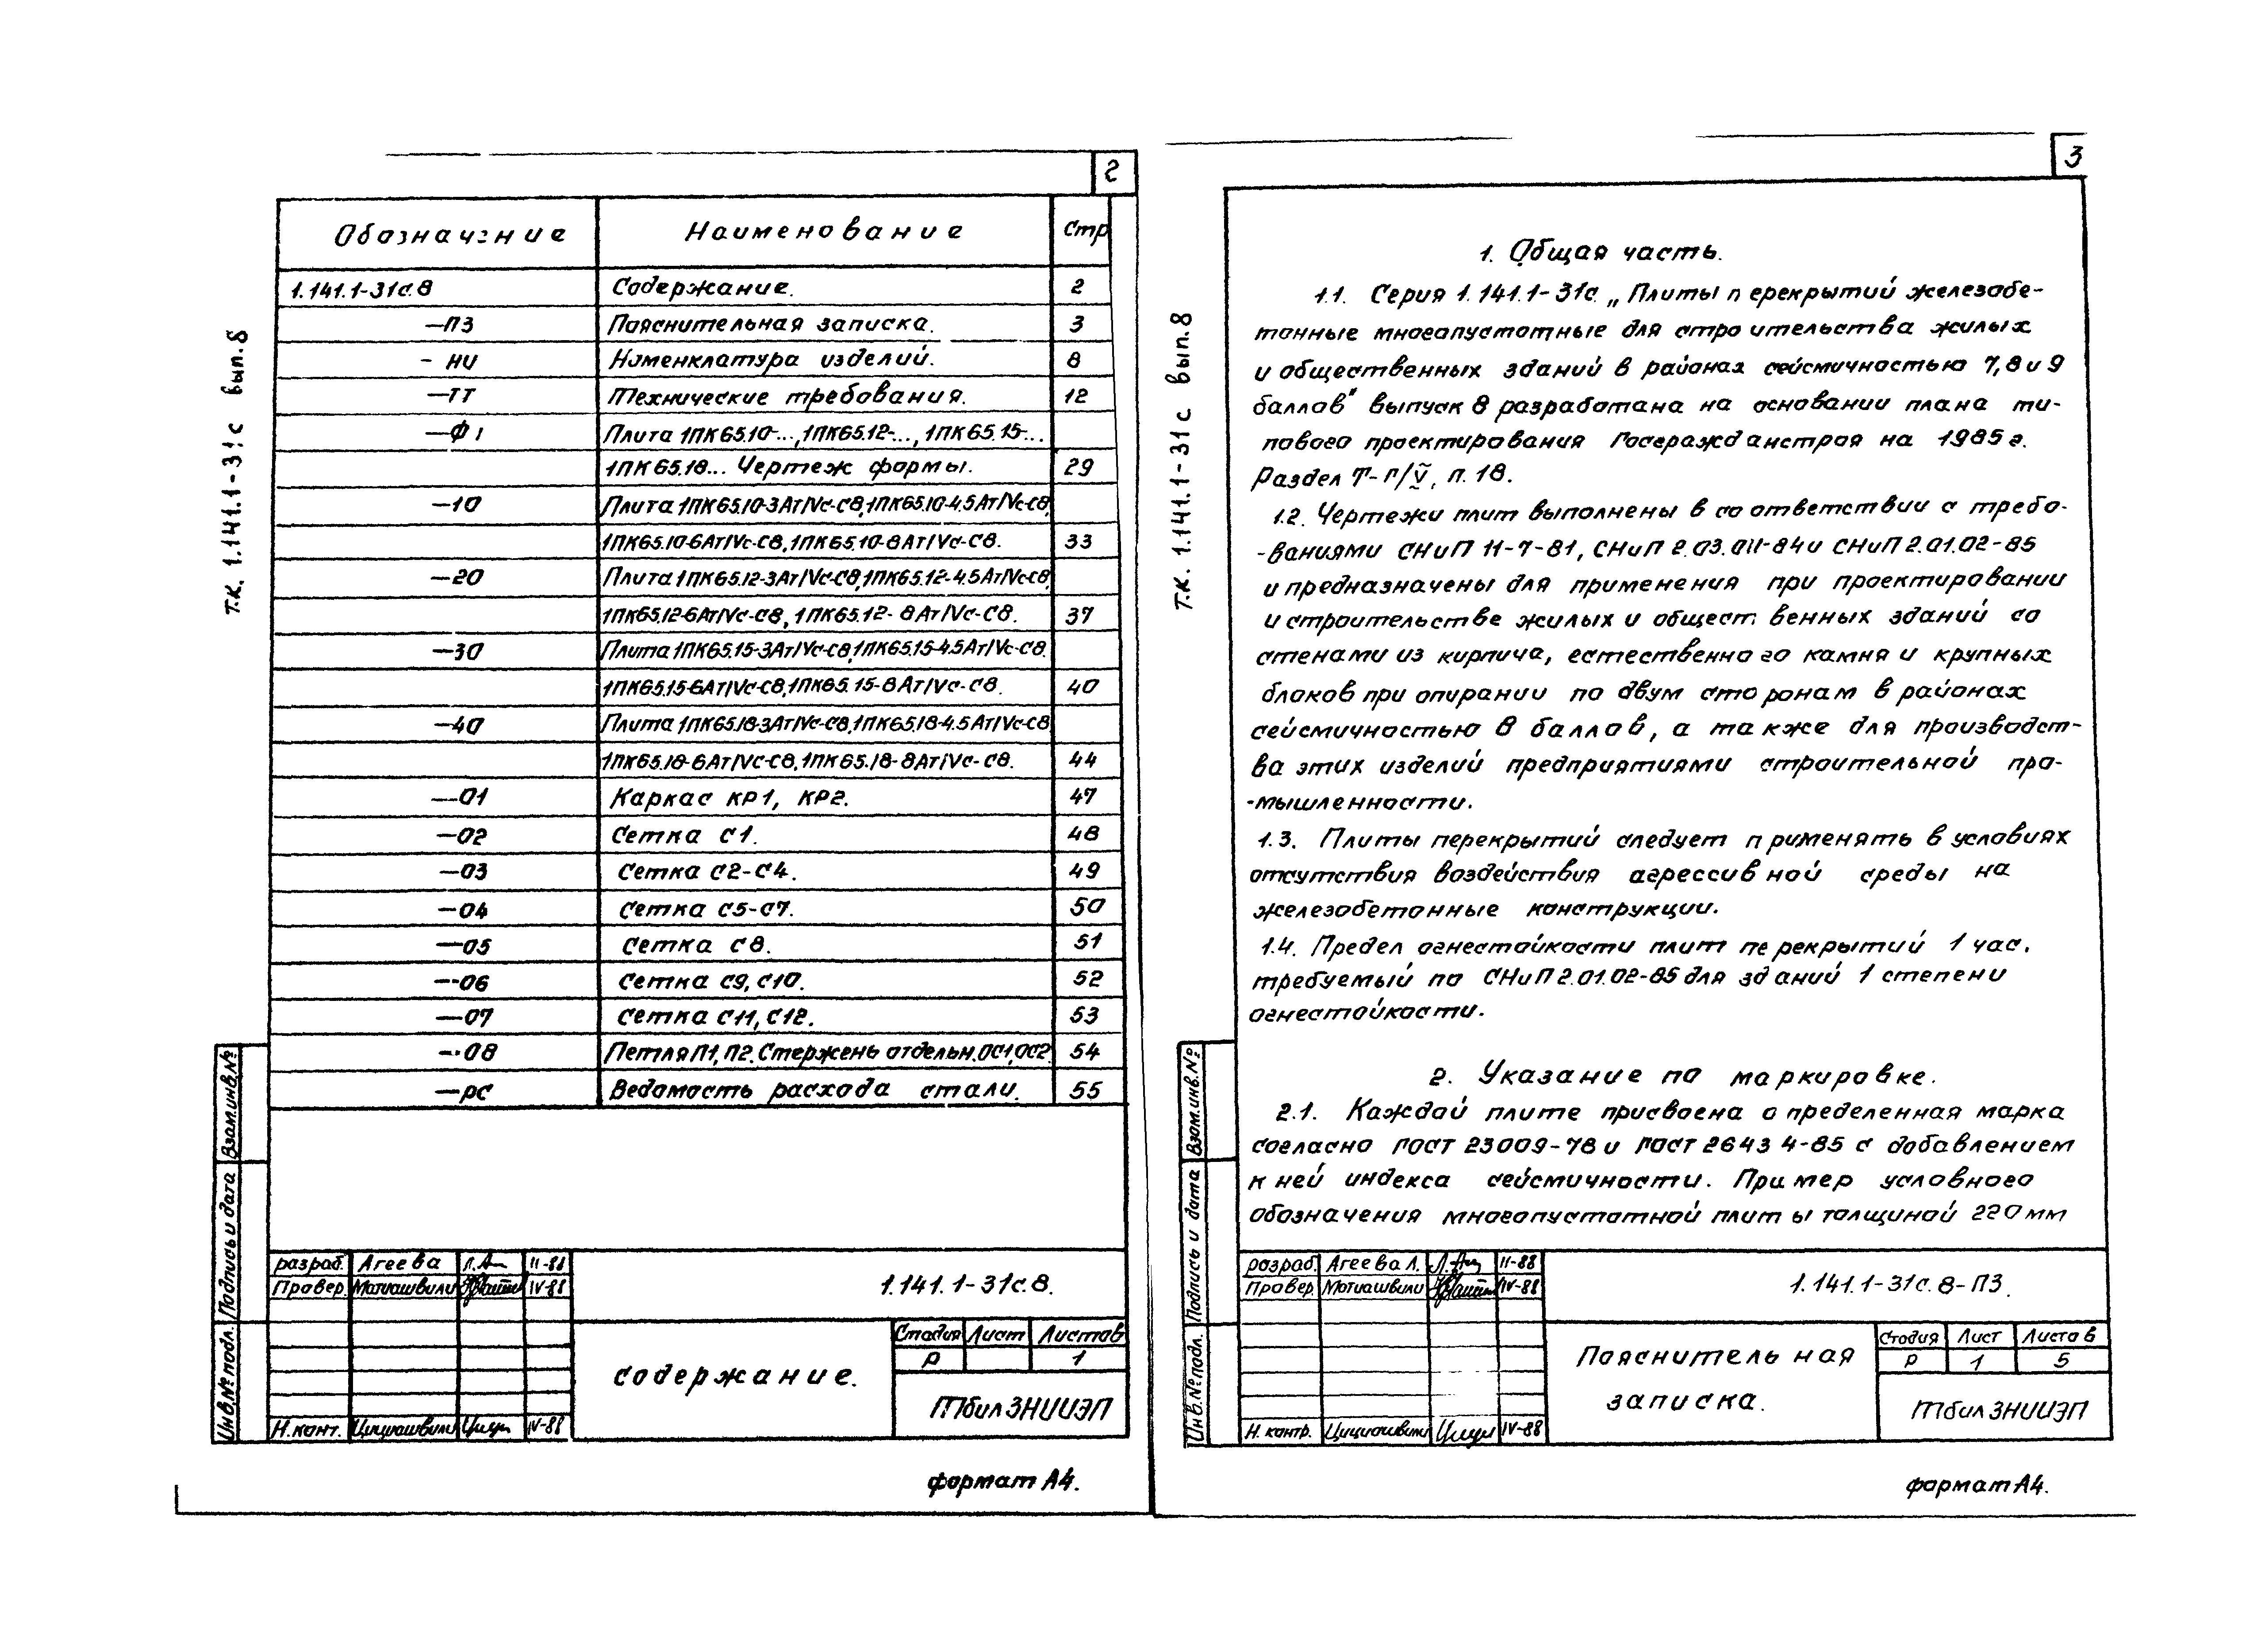 2
Обозначение Наименование Стр
1.141.1-31с.8 Содержание. 2
—ПЗ Пояснительная записка. 3
- НИ Номенклатура изделий. 8
—ТТ Технические требования. 12
—Ф1 Плита 1ПК65.10-..., 1ПК65.12-..., 1ПК65.15-...
1ПК65.18... Чертеж формы. 29
—10 Плита 1ПК65.10-3АтIVс-С8, 1ПК65.10-4.5АтIVс-С8,
1ПК65.10-6АтIVс-С8, 1ПК65.10-8АтIVс-С8. 33
—20 Плита 1ПК65.12-3АтIVс-С8, 1ПК65.12-4.5АтIVс-С8,
1ПК65.12-6АтIVс-С8, 1ПК65.12-8АтIVс-С8. 37
—30 Плита 1ПК65.15-3АтIVс-С8, 1ПК65.15-4.5АтIVс-С8.
1ПК65.15-6АтIVс-С8, 1ПК65.15-8АтIVс-С8. 40
—40 Плита 1ПК65.18-3АтIVс-С8, 1ПК65.18-4.5АтIVс-С8
1ПК65.18-6АтIVс-С8, 1ПК65.18-8АтIVс-С8. 44
—01 Каркас КР1, КР2. 47
—02 Сетка С1. 48
—03 Сетка С2-С4. 49
—04 Сетка С5-С7. 50
—05 Сетка С8. 51
—06 Сетка С9, С10. 52
—07 Сетка С11, С12. 53
—08 Петля П1, П2. Стержень отдельн. ОС1, ОС2. 54
—РС Ведомость расхода стали. 55
Т.К. 1.141.1-31с вып.8
Взам.инв.№
Подпись и дата
Инв.№ подл.
разраб. Агеева II-88
Провер. Матиашвили IV-88
Н.конт. Цициашвили IV-88
1.141.1-31с.8.
содержание.
Стадия Лист Листов
Р 1
ТбилЗНИИЭП
формат А4.
3
1. Общая часть.
1.1. Серия 1.141.1-31с „Плиты перекрытий железобе-
тонные многопустотные для строительства жилых
и общественных зданий в районах сейсмичностью 7, 8 и 9
баллов" выпуск 8 разработана на основании плана ти-
пового проектирования Госгражданстроя на 1985 г.
Раздел Т-Г/V, п. 18.
1.2. Чертежи плит выполнены в соответствии с требо-
-ваниями СНиП II-7-81, СНиП 2.03.01-84 и СНиП 2.01.02-85
и предназначены для применения при проектировании
и строительстве жилых и общественных зданий со
стенами из кирпича, естественного камня и крупных
блоков при опирании по двум сторонам в районах
сейсмичностью 8 баллов, а также для производст-
ва этих изделий предприятиями строительной про-
-мышленности.
1.3. Плиты перекрытий следует применять в условиях
отсутствия воздействия агрессивной среды на
железобетонные конструкции.
1.4. Предел огнестойкости плит перекрытий 1 час.
требуемый по СНиП 2.01.02-85 для зданий 1 степени
огнестойкости.
2. Указание по маркировке.
2.1. Каждой плите присвоена определенная марка
согласно ГОСТ 23009-78 и ГОСТ 26434-85 с добавлением
к ней индекса сейсмичности. Пример условного
обозначения многопустотной плиты толщиной 220 мм
Т.К. 1.141.1-31с вып.8
Взам.инв.№
Подпись и дата
Инв.№ подл.
разраб. Агеева Л. II-88
Провер. Матиашвили IV-88
Н. контр. Цициашвили IV-88
1.141.1-31с.8-ПЗ.
Пояснительная
записка.
Стадия Лист Листов
Р 1 5
ТбилЗНИИЭП
формат А4.